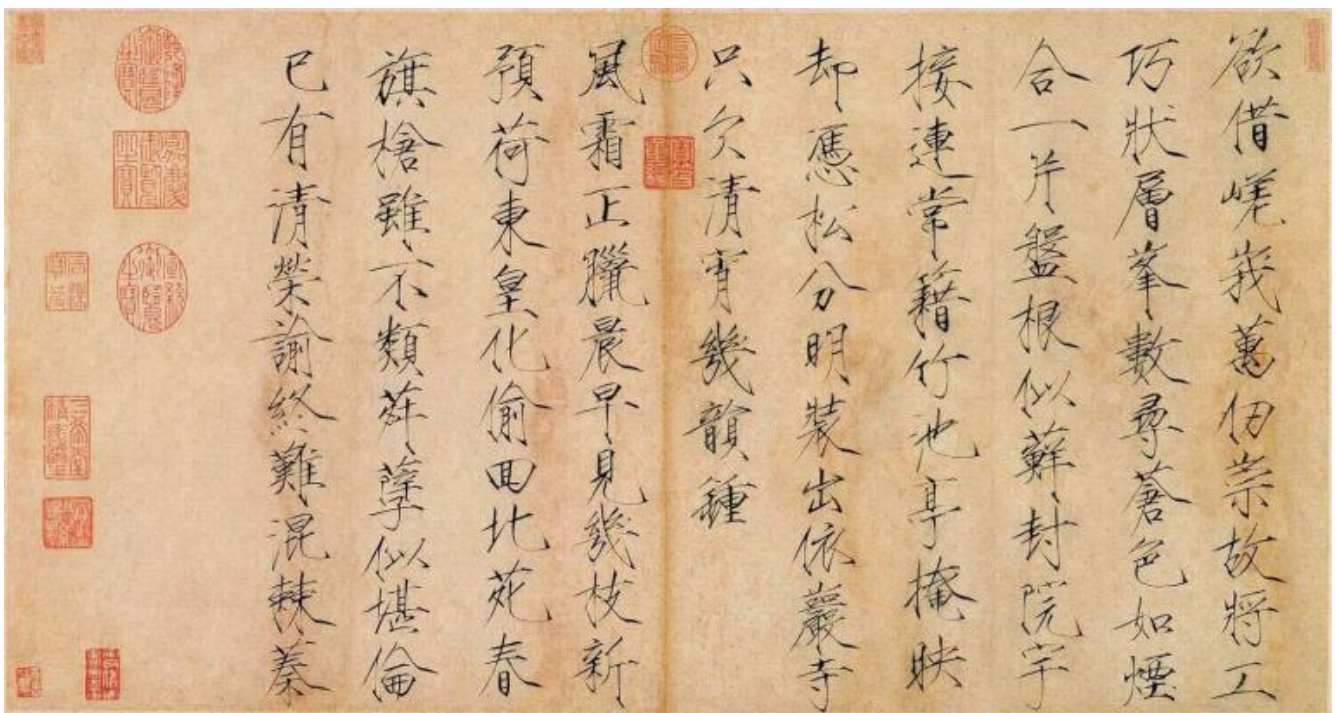 欲借嵯峩萬仞崇故將工
巧狀層峯數尋蒼色如煙
合一片盤根似蘚封院宇
接連常籍竹池亭掩映
却憑松分明裝出依巖寺
只欠清宵幾韻鍾
風霜正臘晨早見幾枝新
預荷東皇化偷回北苑春
旗槍雖不類荈蘖似堪倫
已有清榮諭終難混棘蓁